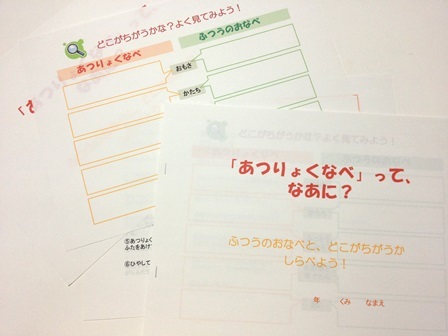 どこがちがうかな?よく見てみよう!
あつりょくなべ
ふつうのおなべ
おもさ
かたち
⑤あつりょく
ふたをあけ
⑥ひやして
「あつりょくなべ」って、
なあに?
ふつうのおなべと、どこがちがうか
しらべよう!
年 くみ なまえ